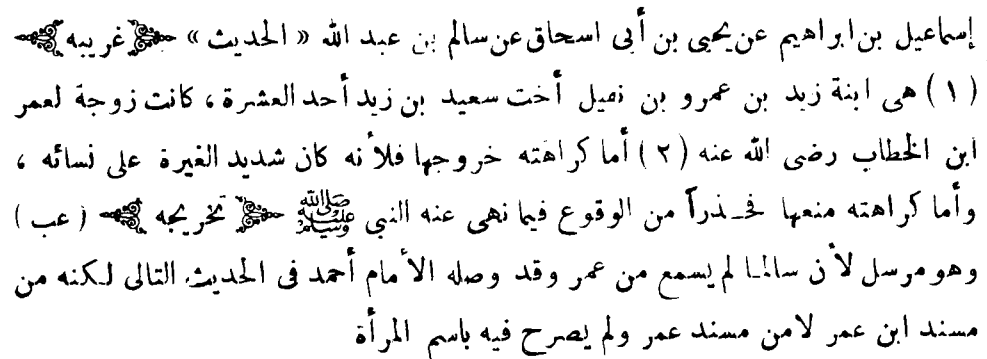 إسماعيل بن ابراهيم عن يحيى بن أبى اسحاق عن سالم بن عبد الله « الحديث » غريبه
( ١ ) هى ابنة زيد بن عمرو بن نفيل أخت سعيد بن زيد أحد العشرة ، كانت زوجة لعمر
ابن الخطاب رضى الله عنه ( ٢ ) أما كراهته خروجها فلأنه كان شديد الغيرة على نسائه ،
وأما كراهته منعها فحذراً من الوقوع فيما نهى عنه النبي ﷺ تخريجه ( عب )
وهو مرسل لأن سالما لم يسمع من عمر وقد وصله الأمام أحمد فى الحديث التالى لكنه من
مسند ابن عمر لامن مسند عمر ولم يصرح فيه باسم المرأة